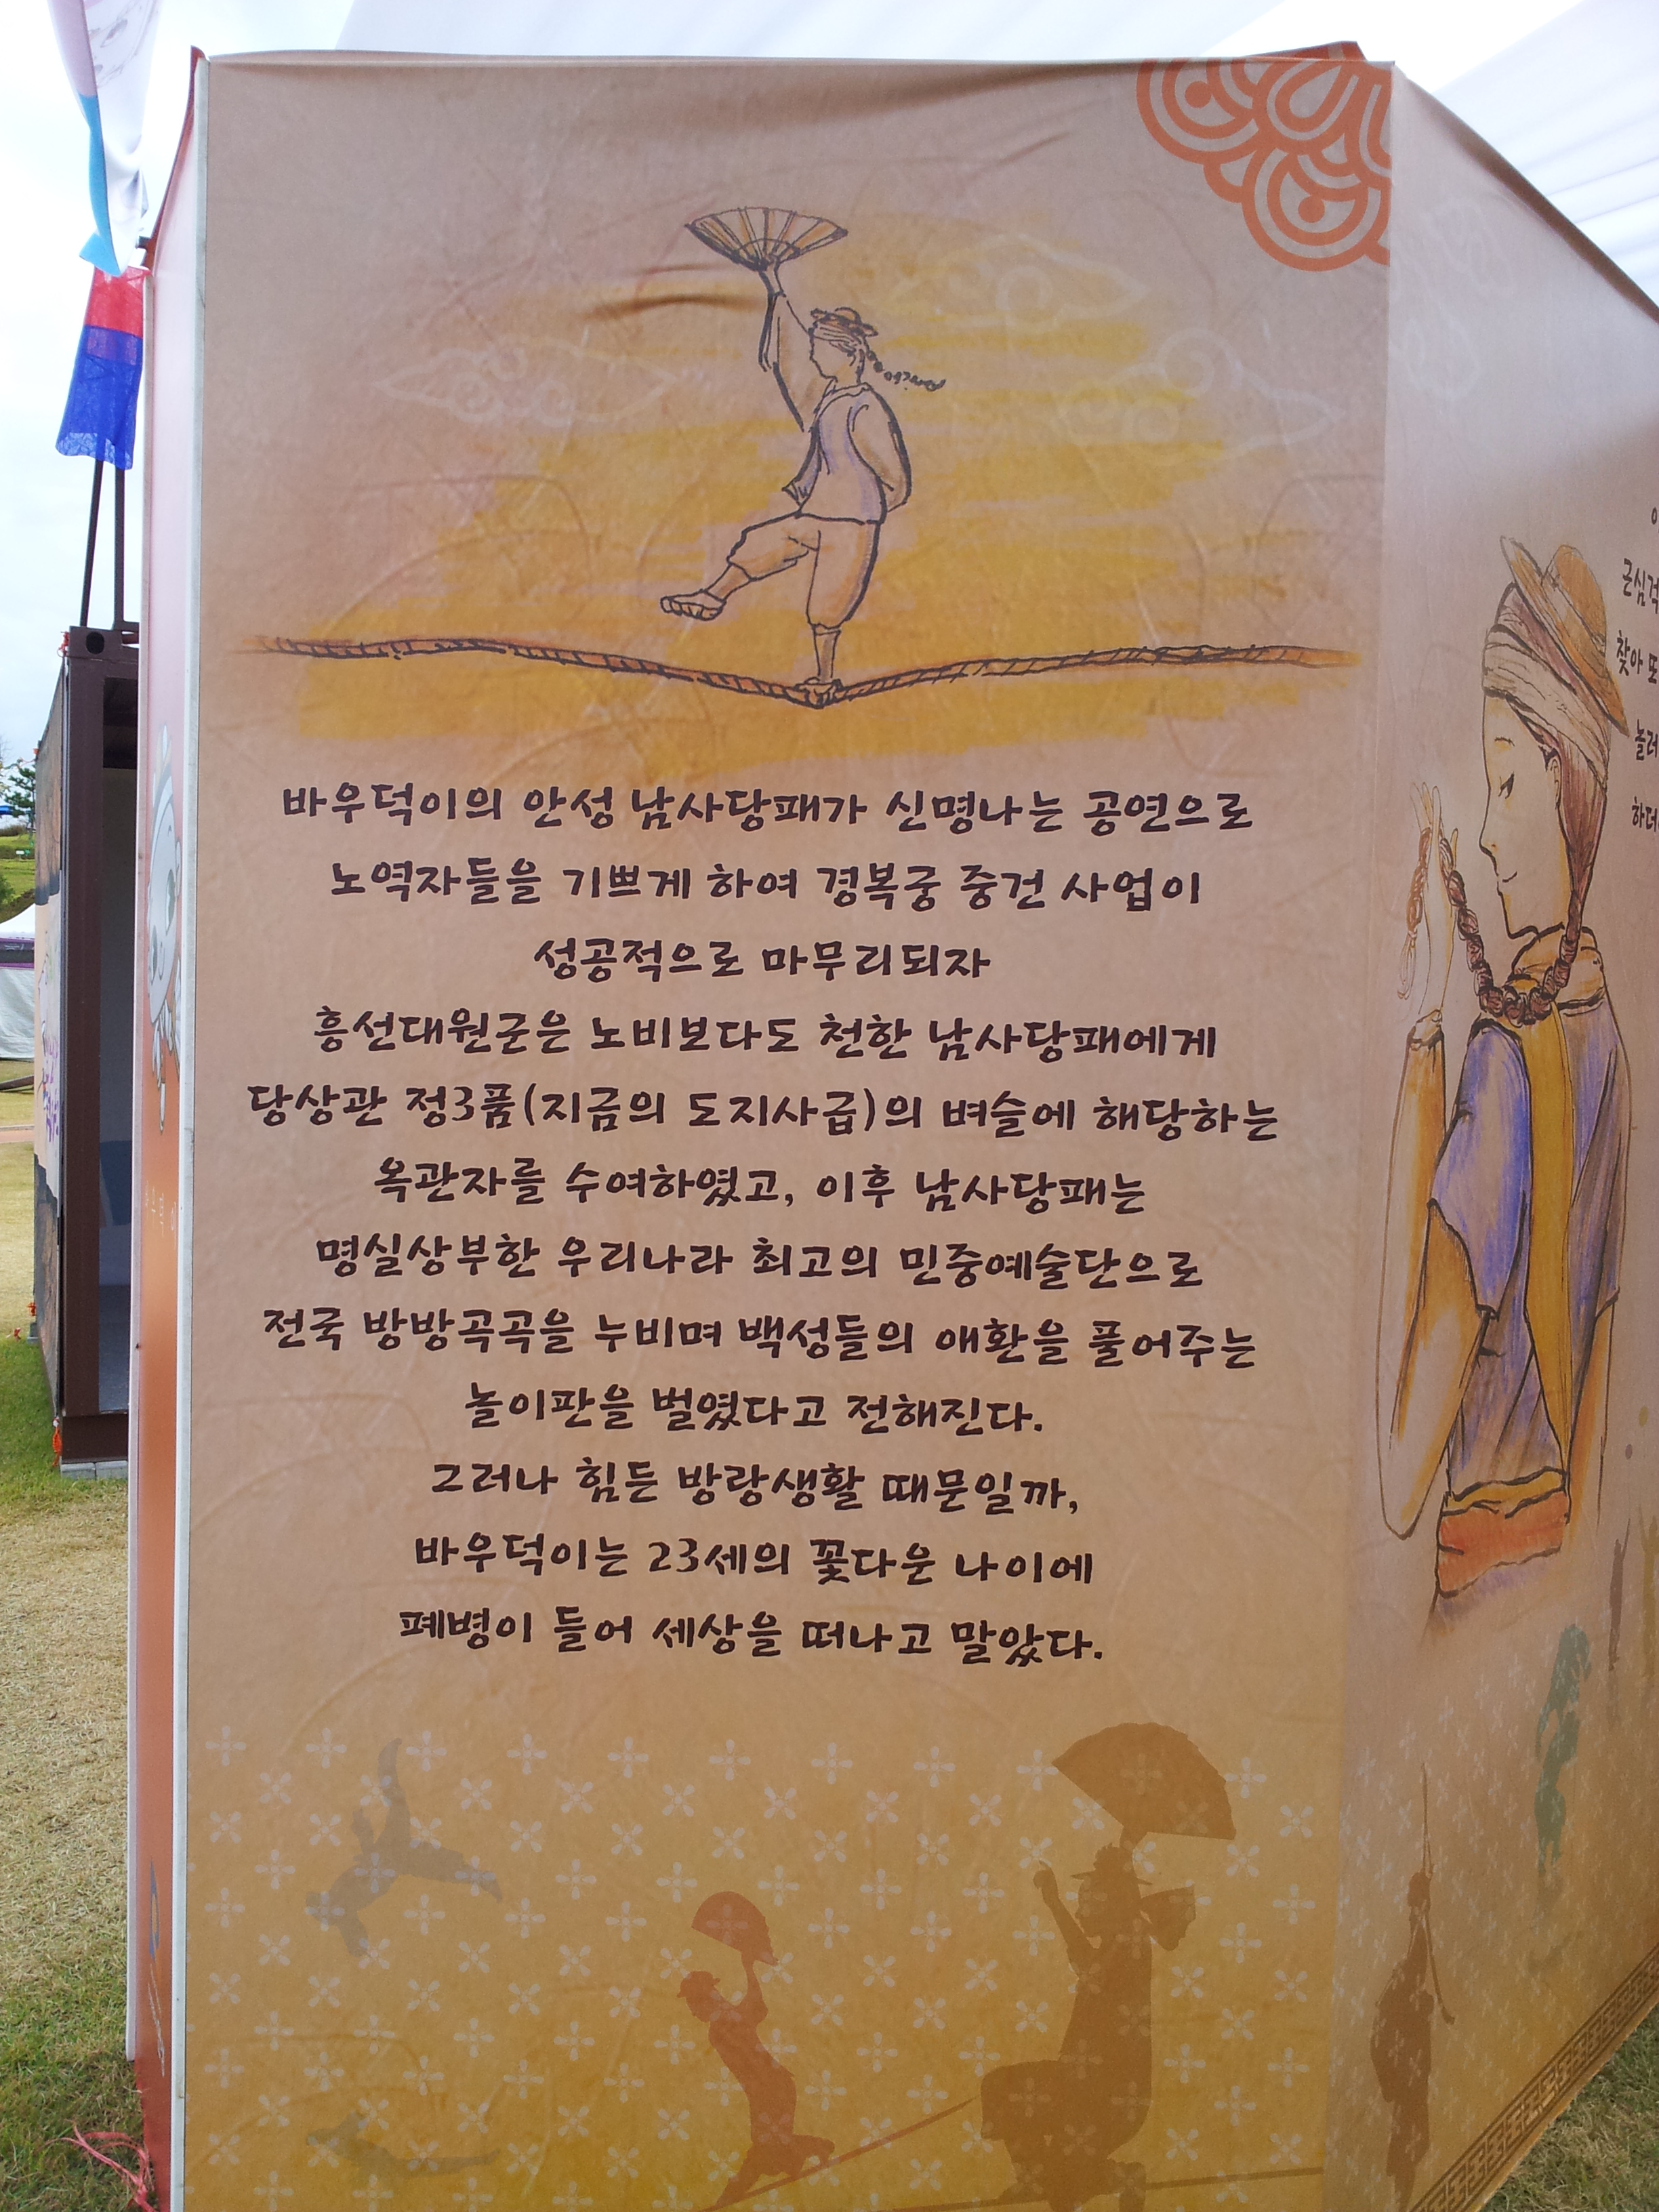 바우덕이의 안성 남사당패가 신명나는 공연으로
노역자들을 기쁘게 하여 경복궁 중건 사업이
성공적으로 마무리되자
흥선대원군은 노비보다도 천한 남사당패에게
당상관 정3품(지금의 도지사급)의 벼슬에 해당하는
옥관자를 수여하였고, 이후 남사당패는
명실상부한 우리나라 최고의 민중예술단으로
전국 방방곡곡을 누비며 백성들의 애환을 풀어주는
놀이판을 벌였다고 전해진다.
그러나 힘든 방랑생활 때문일까,
바우덕이는 23세의 꽃다운 나이에
폐병이 들어 세상을 떠나고 말았다.
근심걱
찾아 또
놀러
하더